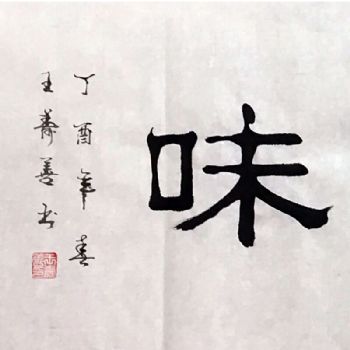 味
丁酉年春
王寿善书